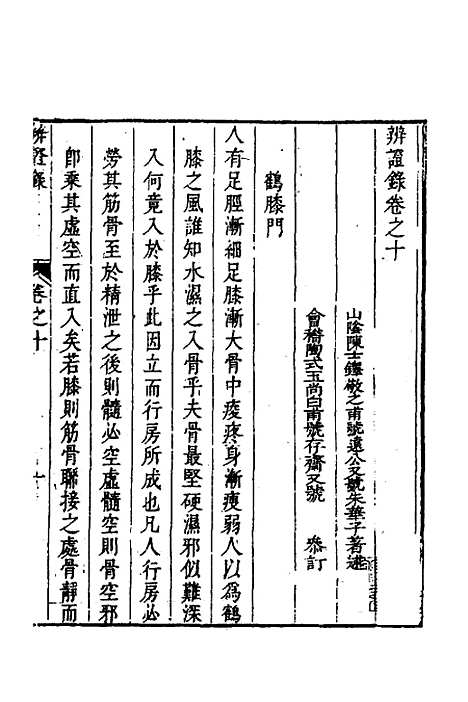 辨證錄卷之十
山陰陳士鐸敬之甫號遠公又號朱華子著述
會稽陶式玉尚白甫號存齋又號　　叅訂
鶴膝門
人有足脛漸細足膝漸大骨中痠疼身漸瘦弱人以爲鶴
膝之風誰知水濕之入骨乎夫骨最堅硬濕邪似難深
入何竟入於膝乎此因立而行房所成也凡人行房必
勞其筋骨至於精泄之後則髓必空虛髓空則骨空邪
卽乘其虛空而直入矣若膝則筋骨聯接之處骨靜而
辨證錄　卷之十　一